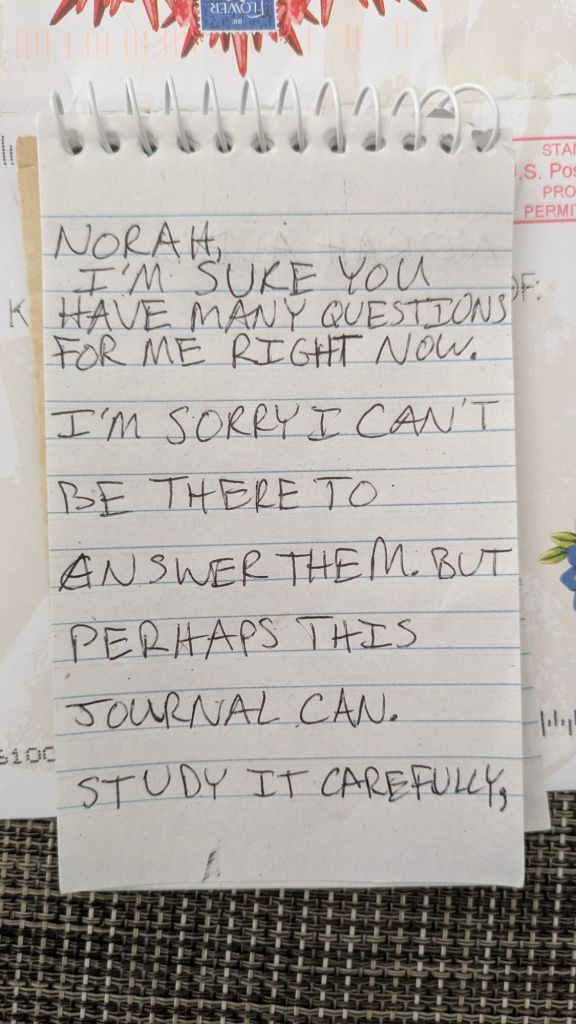 FLOWER
STAN
U.S. Pos
PRO
PERMIT
NORAH,
I'M SURE YOU
HAVE MANY QUESTIONS
FOR ME RIGHT NOW.
I'M SORRY I CAN'T
BE THERE TO
ANSWER THEM. BUT
PERHAPS THIS
JOURNAL CAN.
STUDY IT CAREFULLY,
K
OF.
6100